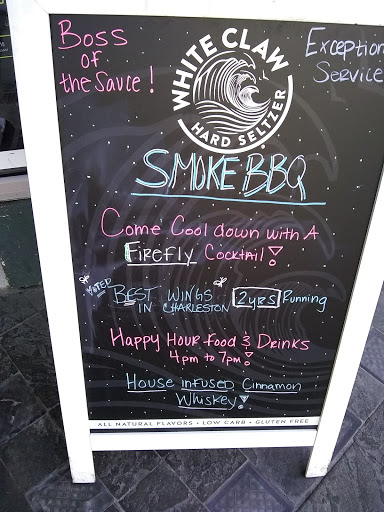 Boss
of
the Sauce!
Exception
Service
WHITE CLAW
HARD SELTZER
SMOKE BBQ
Come Cool down with A
FIREFLY COCKTAIL!
VOTED BEST WINGS 2yrs Running
IN CHARLESTON
Happy Hour Food & Drinks
4pm to 7pm!
House infused Cinnamon
Whiskey!
ALL NATURAL FLAVORS • LOW CARB • GLUTEN FREE